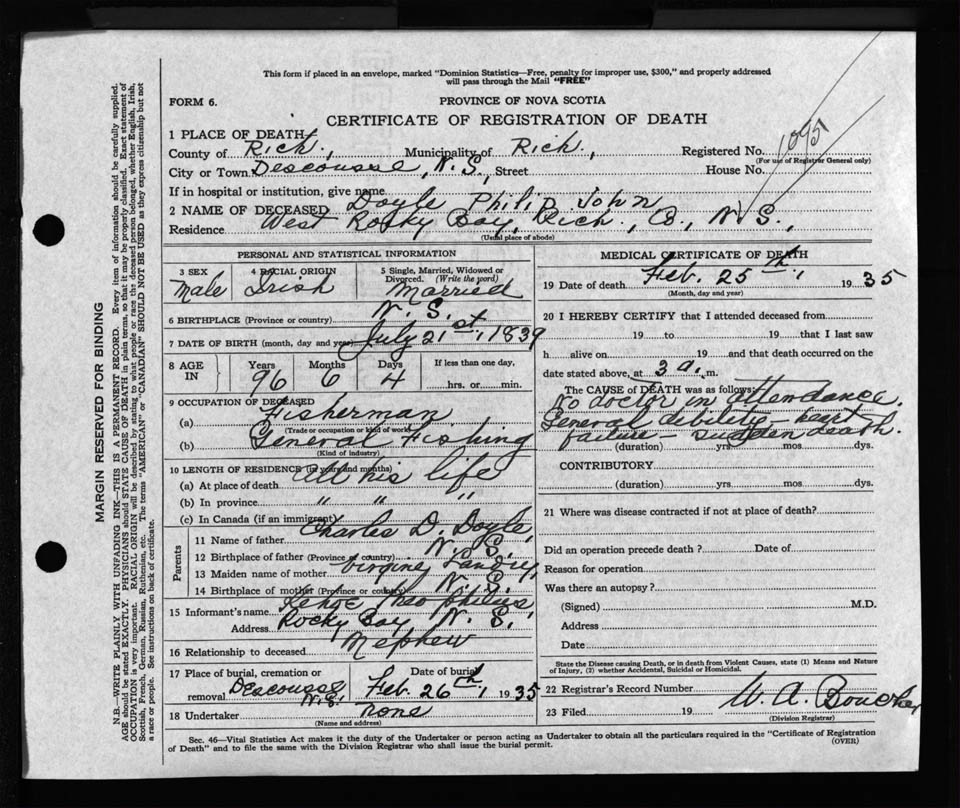 This form if placed in an envelope, marked "Dominion Statistics—Free, penalty for improper use, $300," and properly addressed
will pass through the Mail "FREE"
FORM 6.
PROVINCE OF NOVA SCOTIA
CERTIFICATE OF REGISTRATION OF DEATH
1 PLACE OF DEATH
County of Rich., Municipality of Rich., Registered No.
(For use of Registrar General only)
City or Town. Descousse, N.S., Street House No.
If in hospital or institution, give name
2 NAME OF DECEASED Doyle Philip John
Residence West Rocky Bay, Rich., Co., N.S.,
(Usual place of abode)
PERSONAL AND STATISTICAL INFORMATION
3 SEX 4 RACIAL ORIGIN 5 Single, Married, Widowed or Divorced. (Write the word)
Male Irish Married
6 BIRTHPLACE (Province or country) N.S.
7 DATE OF BIRTH (month, day and year) July 21st, 1839
8 AGE IN Years Months Days If less than one day,
96 6 4 hrs. or min.
9 OCCUPATION OF DECEASED
(a) Fisherman
(Trade or occupation or kind of work)
(b) General Fishing
(Kind of industry)
10 LENGTH OF RESIDENCE (in years and months)
(a) At place of death All his life
(b) In province " " "
(c) In Canada (if an immigrant)
Parents
11 Name of father Charles D. Doyle,
12 Birthplace of father (Province or country) N.S.
13 Maiden name of mother Landry,
14 Birthplace of mother (Province or country) N.S.
15 Informant's name
Address Rocky Bay, N.S.,
16 Relationship to deceased Nephew
17 Place of burial, cremation or removal Descousse N.S. Date of burial Feb. 26th, 1935
18 Undertaker none
(Name and address)
MEDICAL CERTIFICATE OF DEATH
19 Date of death Feb. 25th, 1935
(Month, day and year)
20 I HEREBY CERTIFY that I attended deceased from
19 to 19 that I last saw
h alive on 19 and that death occurred on the
date stated above, at 3 a. m.
The CAUSE of DEATH was as follows:
No doctor in attendance.
General debility - heart
failure - sudden death.
(duration) yrs. mos. dys.
CONTRIBUTORY
(duration) yrs. mos. dys.
21 Where was disease contracted if not at place of death?
Did an operation precede death? Date of
Reason for operation
Was there an autopsy?
(Signed) M.D.
Address
Date
State the Disease causing Death, or in death from Violent Causes, state (1) Means and Nature
of Injury, (2) whether Accidental, Suicidal or Homicidal.
22 Registrar's Record Number
23 Filed 19 W. A. Boucher
(Division Registrar)
Sec. 46—Vital Statistics Act makes it the duty of the Undertaker or person acting as Undertaker to obtain all the particulars required in the "Certificate of Registration
of Death" and to file the same with the Division Registrar who shall issue the burial permit.
(OVER)
MARGIN RESERVED FOR BINDING
N.B.—WRITE PLAINLY WITH UNFADING INK—THIS IS A PERMANENT RECORD. Every item of information should be carefully supplied.
AGE should be stated EXACTLY. PHYSICIANS should STATE CAUSE OF DEATH in plain terms, so that it may be properly classified. Exact statement of
OCCUPATION is very important. RACIAL ORIGIN will be described by stating to what people or race the deceased person belonged, whether English, Irish,
Scottish, French, German, Russian, Ruthenian, etc. The terms "AMERICAN" or "CANADIAN" SHOULD NOT BE USED as they express citizenship but not
a race or people. See instructions on back of certificate.